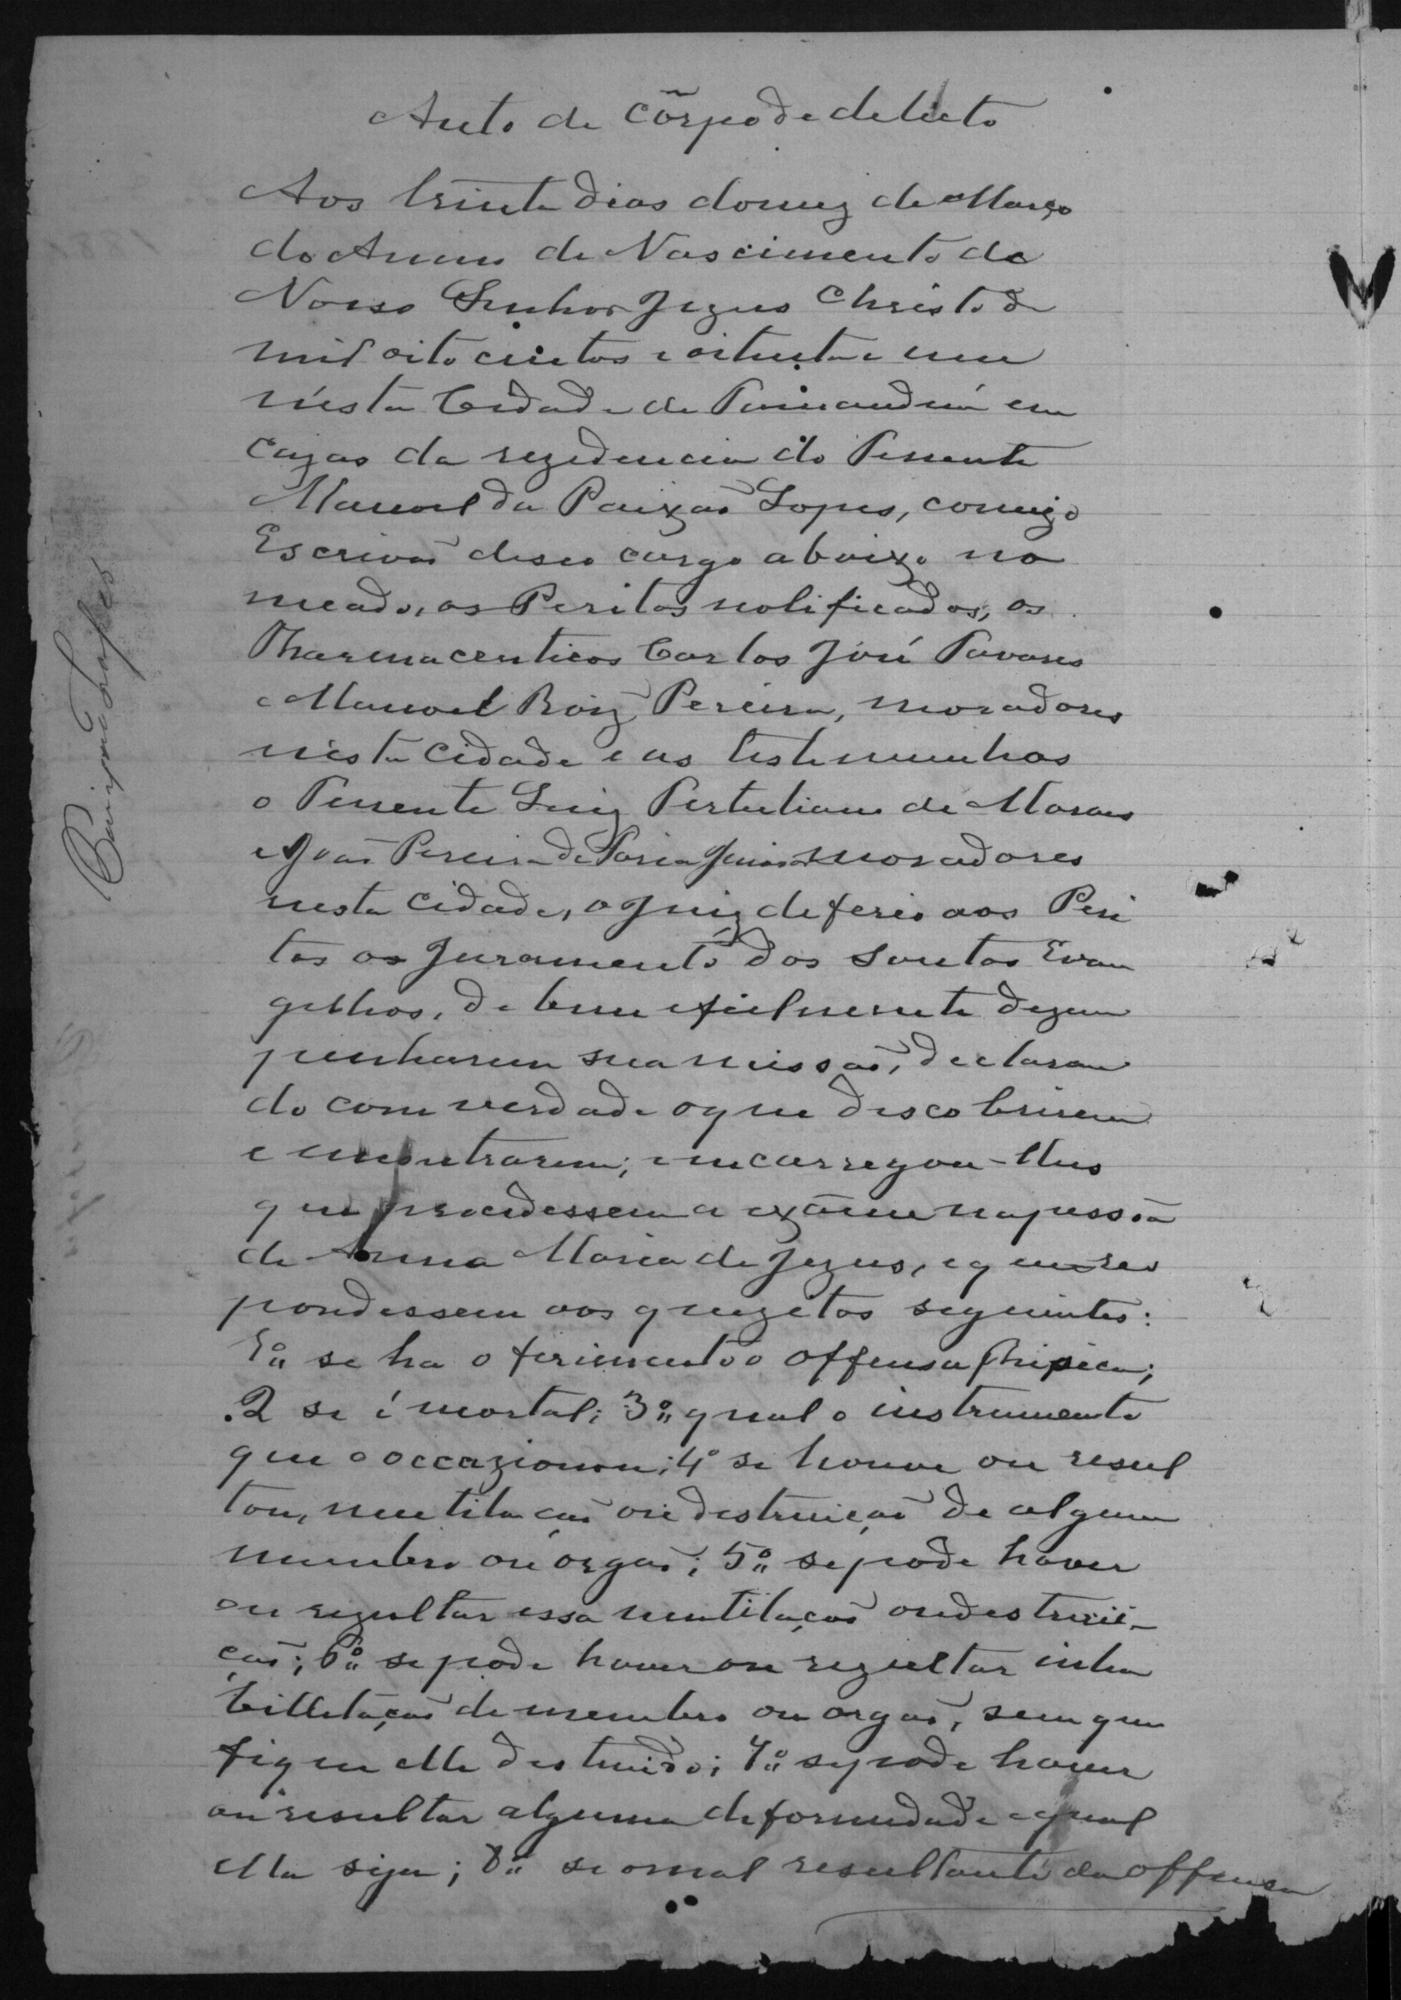 Auto de côrpo de delicto
Aos trinta dias do mez de Março
do Anno de Nascimento de
Nosso Senhor Jezus Christo de
mil oito centos e oitenta e um
n'esta Cidade de
cazas da rezidencia do Tenente
Manoel da Paixão Lopes, comigo
Escrivão de seo cargo abaixo no
meado, os Peritos notificados, os
Pharmaceuticos Carlos José Tavares
e Manoel Roiz Pereira, moradores
n'esta cidade e as testemunhas
o Tenente Luiz Tertuliano de Moraes
e João Pereira de Faria Junior moradores
nesta cidade, o Juiz deferio aos Peri
tos os Juramento dos Santos Evan
gelhos, de bem e fielmente dezem
penharem sua missão, declaran
do com verdade o que descobrirem
e encontrarem; encarregou-lhes
que procedessem a exame na pessôa
de Anna Maria de Jezus, e que res
pondessem aos quezitos seguintes:
1º se ha o ferimento o offensa phizica;
2 se é mortal; 3º qual o instrumento
que o occazionou; 4º se houve ou resul
tou, mutilação ou destruição de algum
membro ou orgão; 5º se pode haver
ou rezultar essa mutilação ou destrui-
ção; 6º se pode haver ou rezultar inha
billitação de membro ou orgão, sem que
fique elle destruido; 7º se pode haver
ou resultar alguma deformidade e qual
ella seja; 8º se o mal resultante da offensa